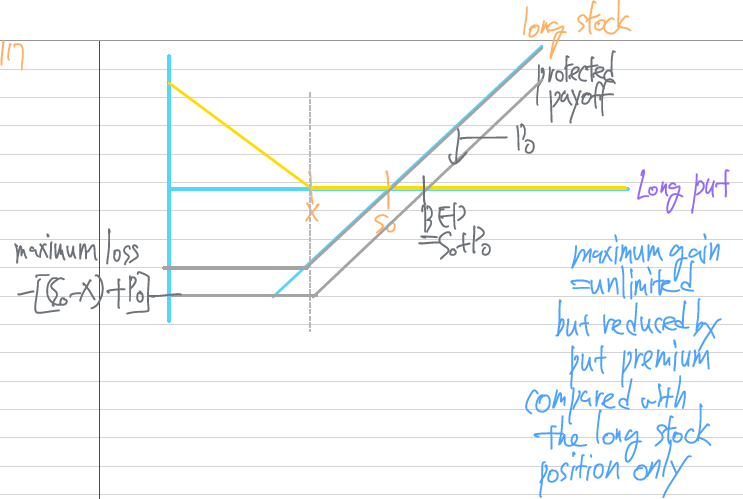 117
long stock
protected
payoff
P₀
Long put
X
S₀
BEP
=S₀+P₀
maximum loss
-[(S₀-X)+P₀]
maximum gain
=unlimited
but reduced by
put premium
compared with
the long stock
position only